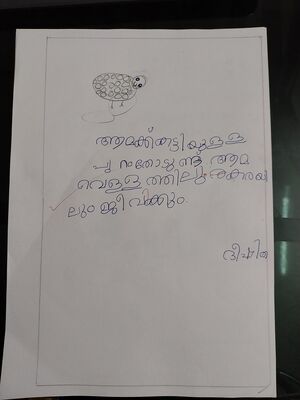 ആമക്ക് കട്ടിയുള്ള
പുറംതോടുണ്ട് ആമ
വെള്ളത്തിലും കരയി
ലും ജീവിക്കും.